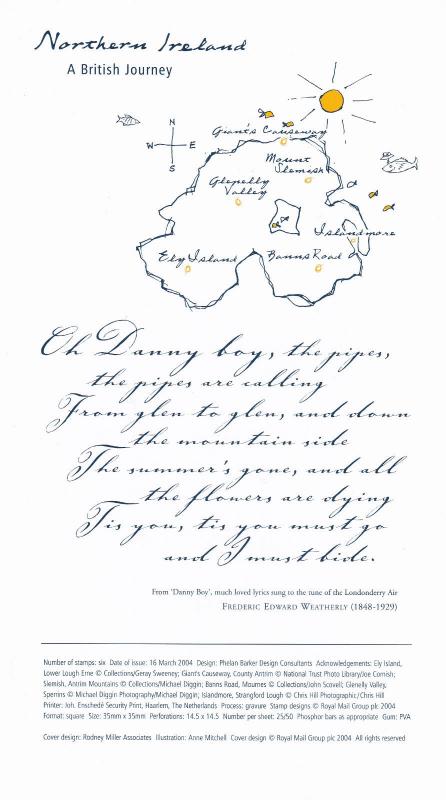 Northern Ireland
A British Journey
N
W E
S
Giant's Causeway
Mount
Slemish
Glenelly
Valley
Islandmore
Ely Island
Banns Road
Oh Danny boy, the pipes,
the pipes are calling
From glen to glen, and down
the mountain side
The summer's gone, and all
the flowers are dying
Tis you, tis you must go
and I must bide.
From 'Danny Boy', much loved lyrics sung to the tune of the Londonderry Air
Frederic Edward Weatherly (1848-1929)
Number of stamps: six Date of issue: 16 March 2004 Design: Phelan Barker Design Consultants Acknowledgements: Ely Island,
Lower Lough Erne © Collections/Geray Sweeney; Giant's Causeway, County Antrim © National Trust Photo Library/Joe Cornish;
Slemish, Antrim Mountains © Collections/Michael Diggin; Banns Road, Mournes © Collections/John Scovell; Glenelly Valley,
Sperrins © Michael Diggin Photography/Michael Diggin; Islandmore, Strangford Lough © Chris Hill Photographic/Chris Hill
Printer: Joh. Enschedé Security Print, Haarlem, The Netherlands Process: gravure Stamp designs © Royal Mail Group plc 2004
Format: square Size: 35mm x 35mm Perforations: 14.5 x 14.5 Number per sheet: 25/50 Phosphor bars as appropriate Gum: PVA
Cover design: Rodney Miller Associates Illustration: Anne Mitchell Cover design © Royal Mail Group plc 2004 All rights reserved